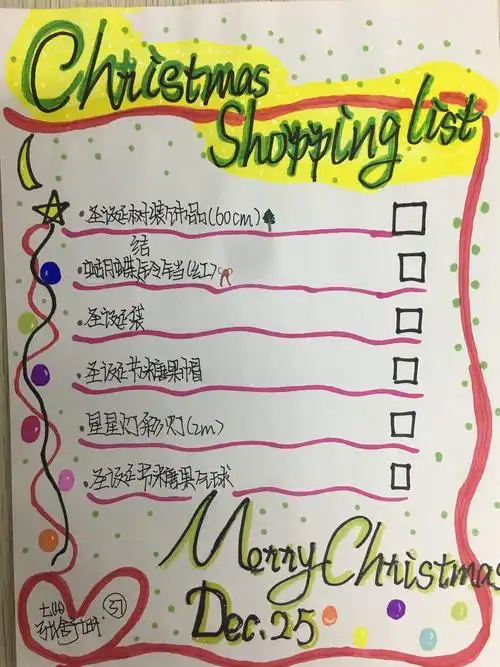 Christmas
Shopping list
·圣诞树装饰品(60cm)
结
·蝴蝶铃铛(红)
·圣诞袋
·圣诞节糖果帽
·星星灯彩灯(2m)
·圣诞节糖果气球
Merry Christmas
Dec.25